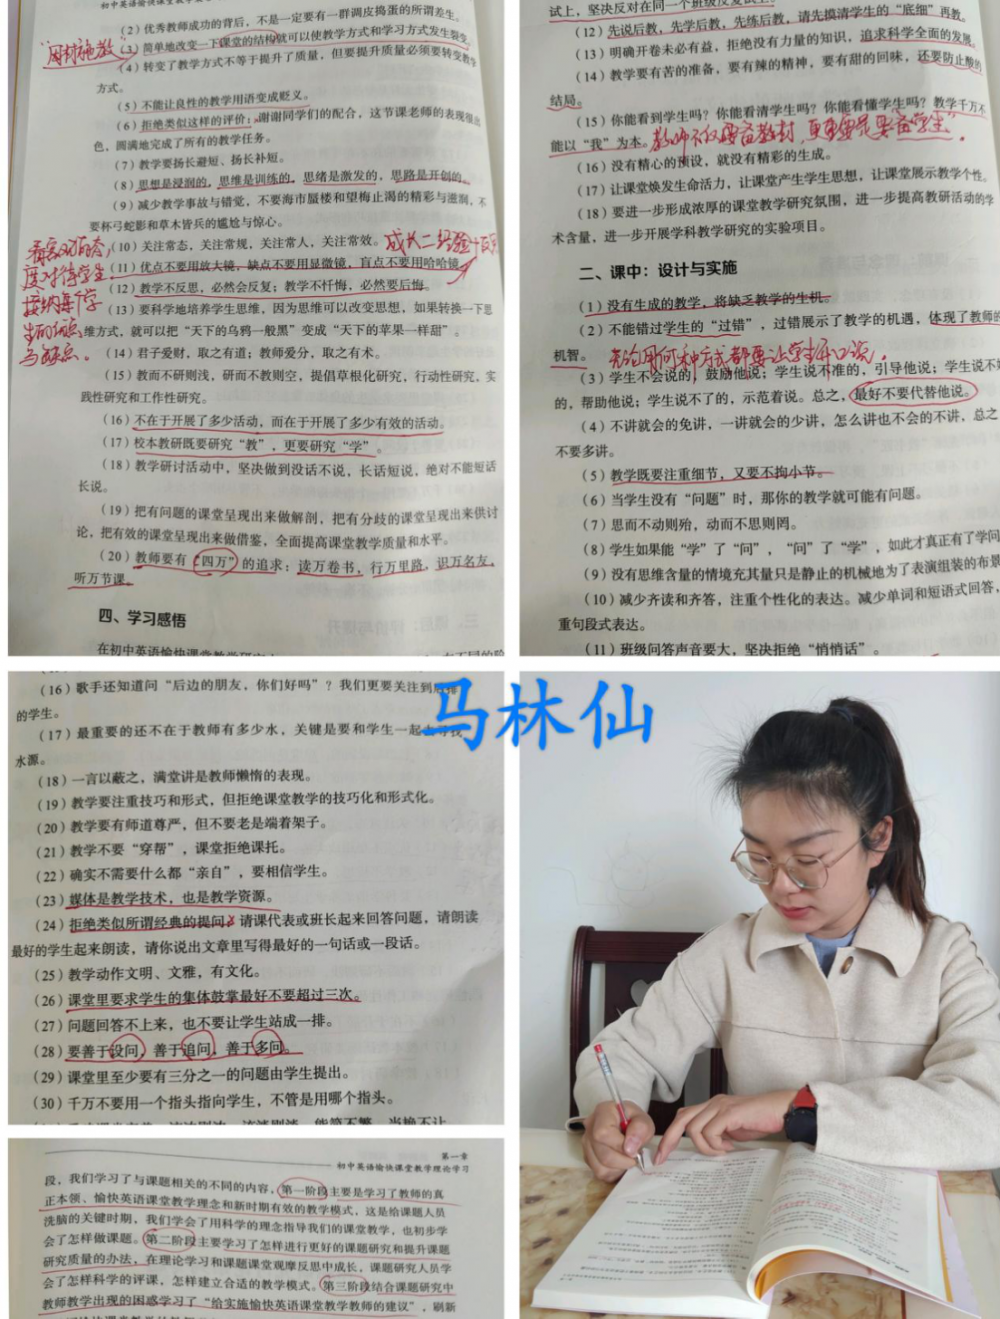 （2）优秀教师成功的背后，不是一定要有一群调皮捣蛋的所谓差生。
"因材施教"
（3）简单地改变一下课堂的结构就可以使教学方式和学习方式发生裂变。
（4）转变了教学方式不等于提升了质量，但要提升质量必须要转变教学
方式。
（5）不能让良性的教学用语变成贬义。
（6）拒绝类似这样的评价：谢谢同学们的配合，这节课老师的表现很出
色，圆满地完成了所有的教学任务。
（7）教学要扬长避短、扬长补短。
（8）思想是浸润的，思维是训练的，思绪是激发的，思路是开创的。
（9）减少教学事故与错觉，不要海市蜃楼和望梅止渴的精彩与滋润，不
要杯弓蛇影和草木皆兵的尴尬与惊心。
（10）关注常态，关注常规，关注常人，关注常效。
成长二经验十反思
（11）优点不要用放大镜，缺点不要用显微镜，盲点不要用哈哈镜。
度对待学生
接纳每个学
（12）教学不反思，必然会反复；教学不忏悔，必然要后悔。
（13）要科学地培养学生思维，因为思维可以改变思想，如果转换一下思
维方式，就可以把“天下的乌鸦一般黑”变成“天下的苹果一样甜”。
（14）君子爱财，取之有道；教师爱分，取之有术。
（15）教而不研则浅，研而不教则空，提倡草根化研究，行动性研究，实
践性研究和工作性研究。
（16）不在于开展了多少活动，而在于开展了多少有效的活动。
（17）校本教研既要研究“教”，更要研究“学”。
（18）教学研讨活动中，坚决做到没话不说，长话短说，绝对不能短话
长说。
（19）把有问题的课堂呈现出来做解剖，把有分歧的课堂呈现出来供讨
论，把有效的课堂呈现出来做借鉴，全面提高课堂教学质量和水平。
（20）教师要有“四万”的追求：读万卷书，行万里路，识万名友，
听万节课。
四、学习感悟
试上，坚决反对在同一个班级反复试上。
（12）先说后教，先学后教，先练后教，请先摸清学生的“底细”再教。
（13）明确开卷未必有益，拒绝没有力量的知识，追求科学全面的发展。
（14）教学要有苦的准备，要有辣的精神，要有甜的回味，还要防止酸的
结局。
（15）你能看到学生吗？你能看清学生吗？你能看懂学生吗？教学千万不
能以“我”为本。
教师不仅要备教材，更重要是要备学生。
（16）没有精心的预设，就没有精彩的生成。
（17）让课堂焕发生命活力，让课堂产生学生思想，让课堂展示教学个性。
（18）要进一步形成浓厚的课堂教学研究氛围，进一步提高教研活动的学
术含量，进一步开展学科教学研究的实验项目。
二、课中：设计与实施
（1）没有生成的教学，将缺乏教学的生机。
（2）不能错过学生的“过错”，过错展示了教学的机遇，体现了教师的
机智。
无论用何种方式都要让学生开口说。
（3）学生不会说的，鼓励他说；学生说不准的，引导他说；学生说不好
的，帮助他说；学生说不了的，示范着说。总之，最好不要代替他说。
（4）不讲就会的免讲，一讲就会的少讲，怎么讲也不会的不讲，总之
不要多讲。
（5）教学既要注重细节，又要不拘小节。
（6）当学生没有“问题”时，那你的教学就可能有问题。
（7）思而不动则殆，动而不思则罔。
（8）学生如果能“学”了“问”，“问”了“学”，如此才真正有了学问
（9）没有思维含量的情境充其量只是静止的机械地为了表演组装的布景
（10）减少齐读和齐答，注重个性化的表达。减少单词和短语式回答，
重句段式表达。
（11）班级问答声音要大，坚决拒绝“悄悄话”。
（16）歌手还知道问“后边的朋友，你们好吗”？我们更要关注到后排
的学生。
马林仙
（17）最重要的还不在于教师有多少水，关键是要和学生一起去寻找
水源。
（18）一言以蔽之，满堂讲是教师懒惰的表现。
（19）教学要注重技巧和形式，但拒绝课堂教学的技巧化和形式化。
（20）教学要有师道尊严，但不要老是端着架子。
（21）教学不要“穿帮”，课堂拒绝课托。
（22）确实不需要什么都“亲自”，要相信学生。
（23）媒体是教学技术，也是教学资源。
（24）拒绝类似所谓经典的提问：请课代表或班长起来回答问题，请朗读
最好的学生起来朗读，请你说出文章里写得最好的一句话或一段话。
（25）教学动作文明、文雅，有文化。
（26）课堂里要求学生的集体鼓掌最好不要超过三次。
（27）问题回答不上来，也不要让学生站成一排。
（28）要善于设问，善于追问，善于多问。
（29）课堂里至少要有三分之一的问题由学生提出。
（30）千万不要用一个指头指向学生，不管是用哪个指头。
第一章
初中英语愉快课堂教学理论学习
段，我们学习了与课题相关的不同的内容，第一阶段主要是学习了教师的真
正本领、愉快英语课堂教学理念和新时期有效的教学模式，这是给课题人员
洗脑的关键时期，我们学会了用科学的理念指导我们的课堂教学，也初步学
会了怎样做课题。第二阶段主要学习了怎样进行更好的课题研究和提升课题
研究质量的办法，在理论学习和课题课堂观摩反思中成长，课题研究人员学
会了怎样科学的评课，怎样建立合适的教学模式。第三阶段结合课题研究中
教师教学出现的困惑学习了“给实施愉快英语课堂教学教师的建议”，刷新